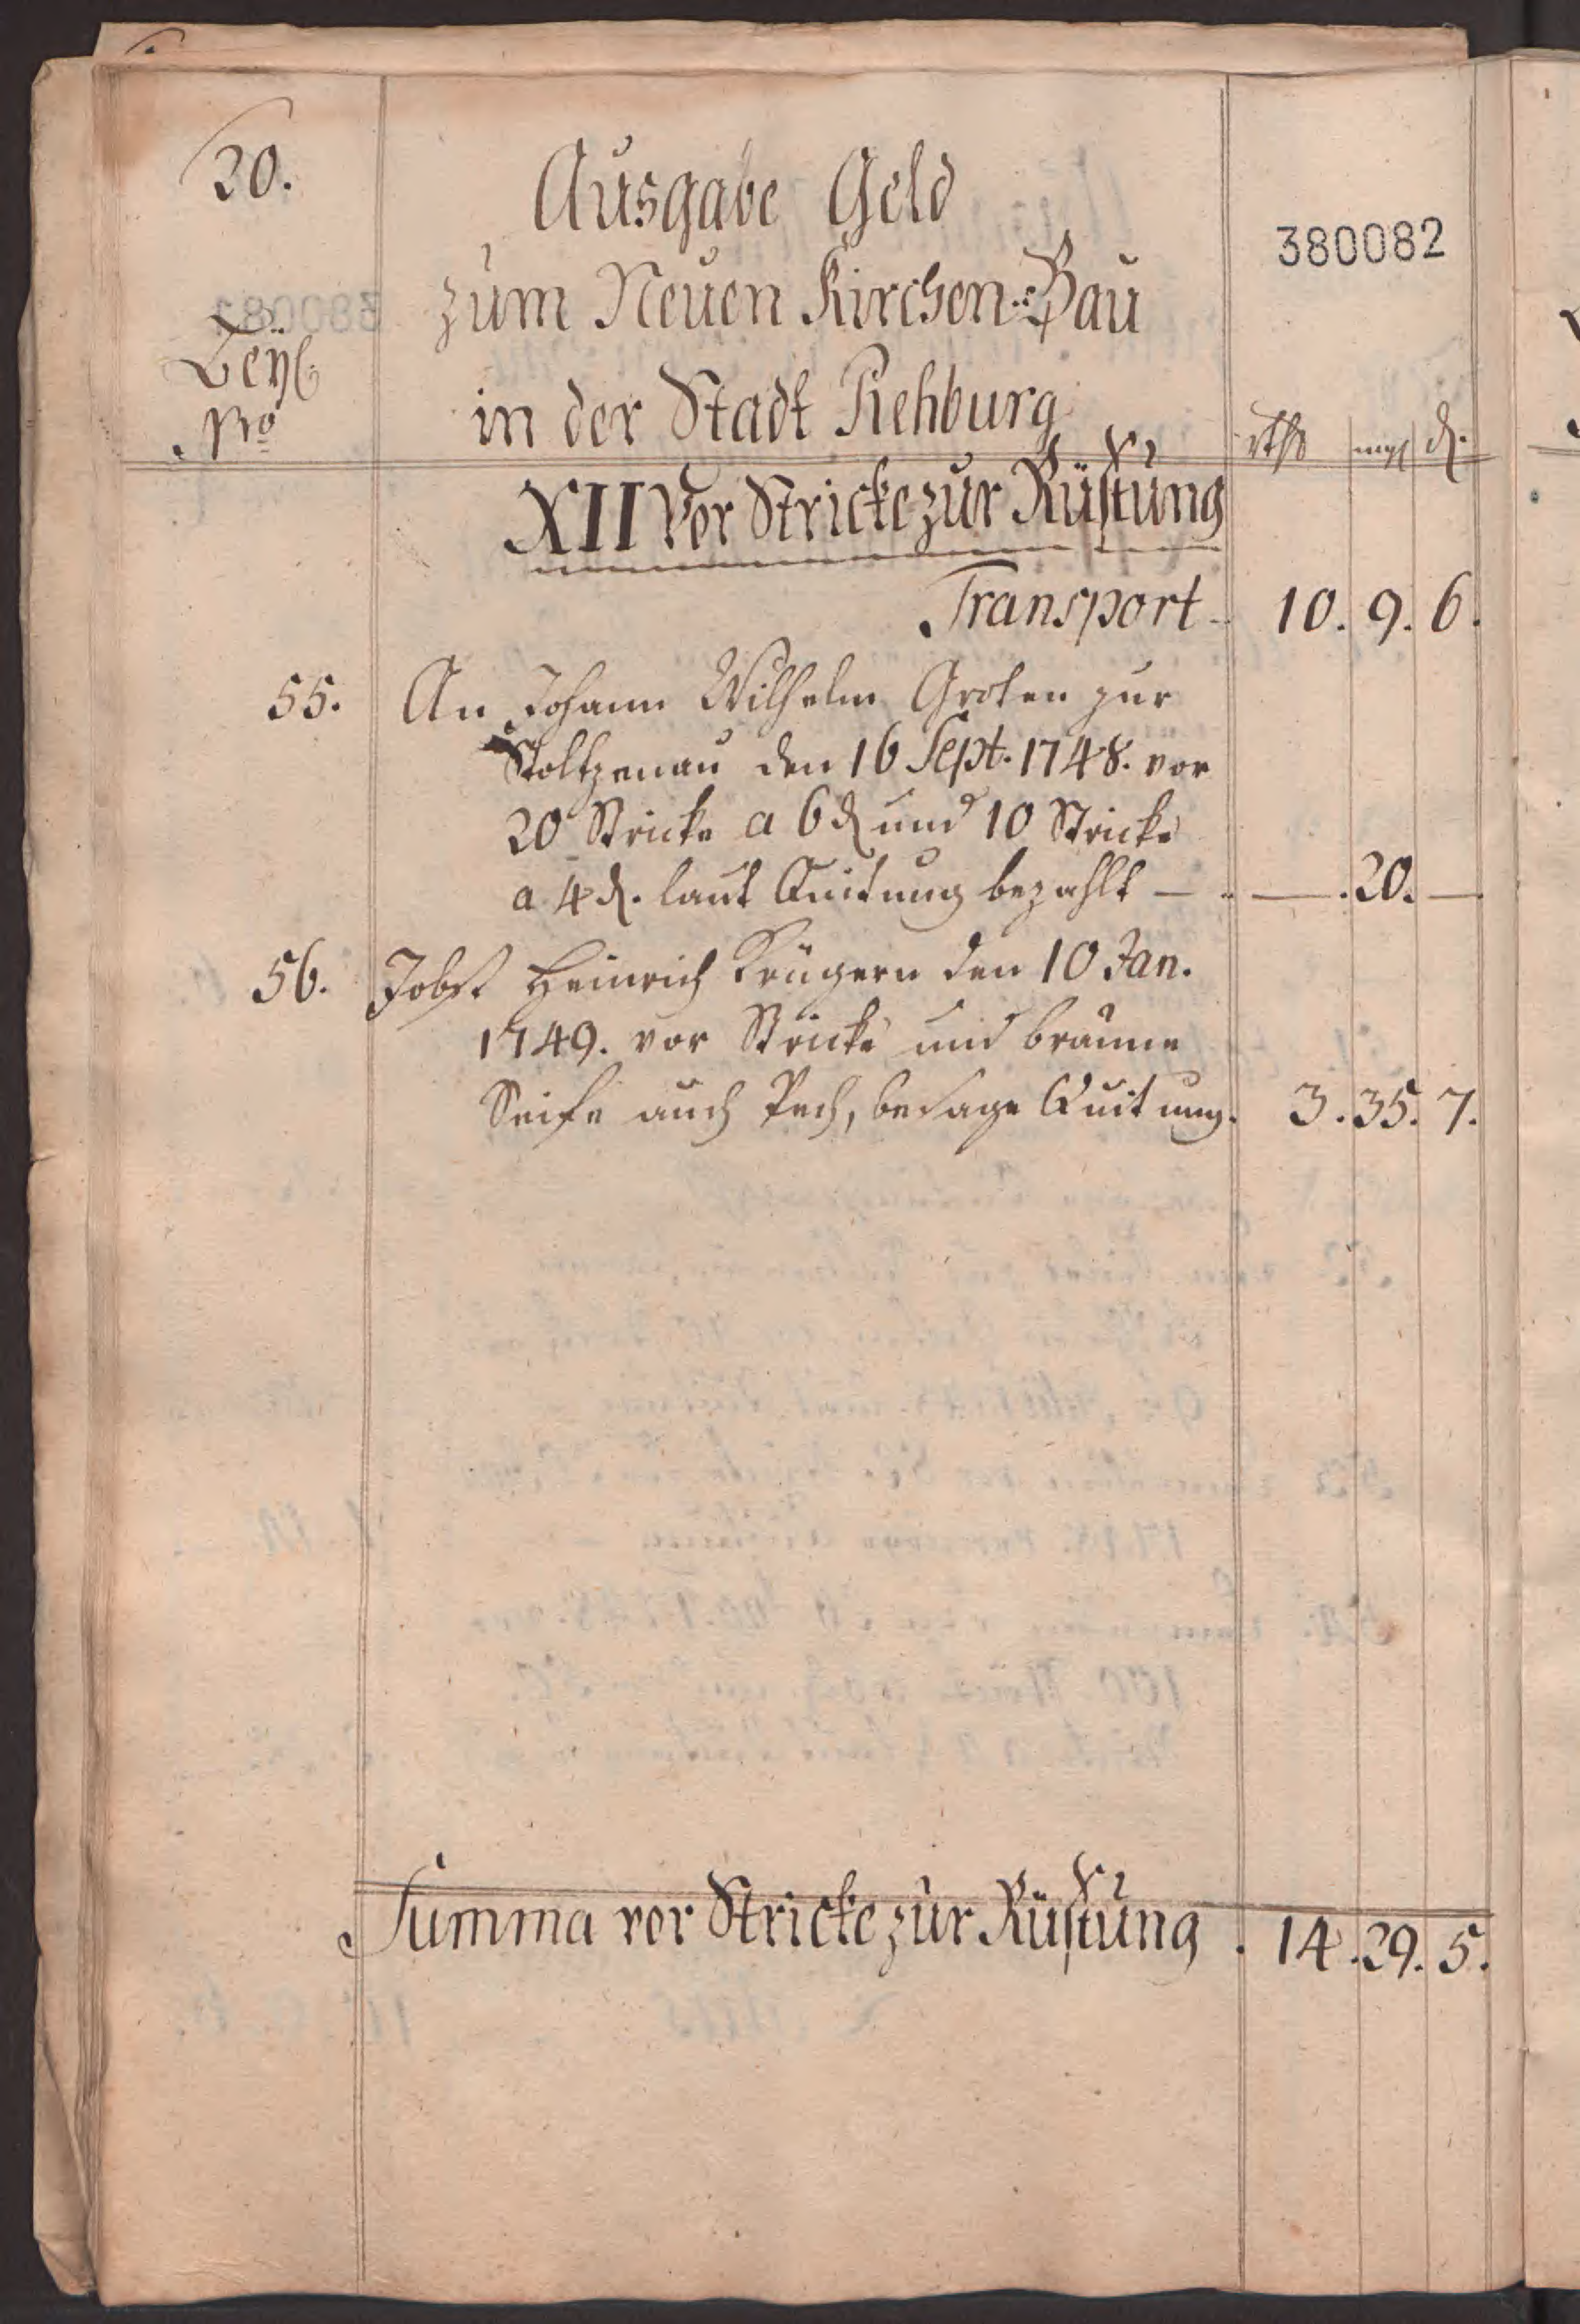 20.
Ausgabe Geld
380082
zum Neuen Kirchen-Bau
Beyl
in der Stadt Rehburg
No
rthl mgl d.
XII Vor Stricke zur Rüstung
Transport 10. 9. 6.
55. An Johann Wilhelm Groten zur
Stoltzenau den 16 Sept. 1748. vor
20 Stricke a 6 d und 10 Stricke
a 4 d. laut Quitung bezahlt — — . 20. —
56. Jobst Heinrich Krügern den 10 Jan.
1749. vor Stricke und braune
Seife auch Pech, besage Quitung. 3. 35. 7.
Summa vor Stricke zur Rüstung . 14. 29. 5.